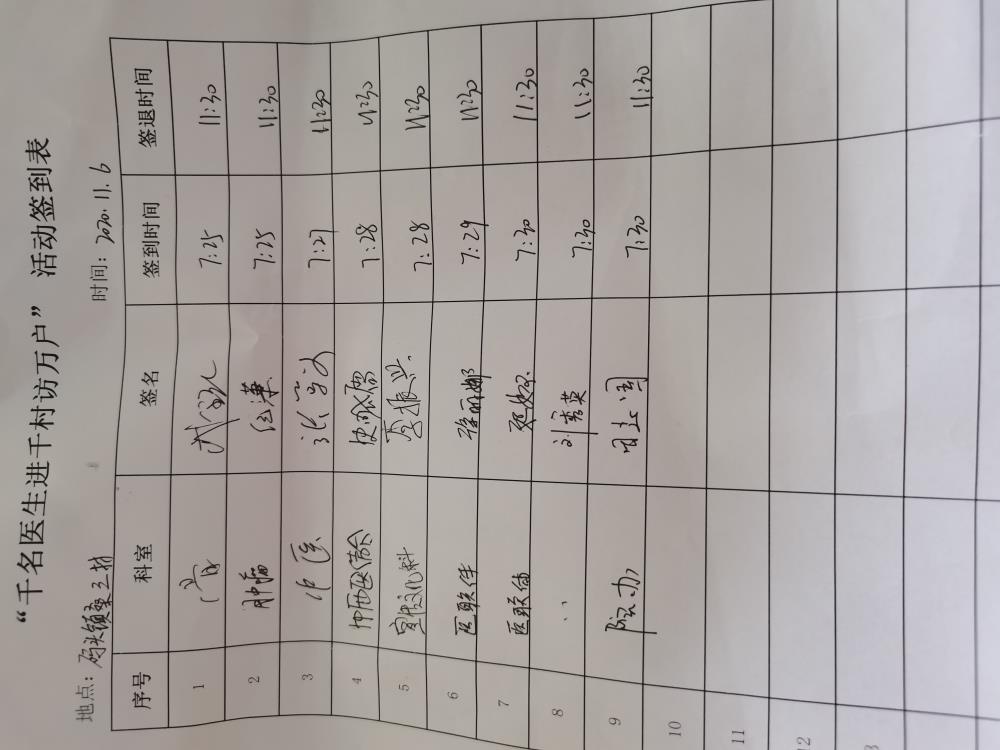 “千名医生进千村访万户” 活动签到表
地点：码头镇 时间：2020.11.6
序号 科室 签名 签到时间 签退时间
1 7:25 11:30
2 肿瘤 7:25 11:30
3 中医 7:27 11:30
4 中西医结合 7:28 11:30
5 宣传文化科 李振兴 7:28 11:30
6 医联体 徐丽娜 7:29 11:30
7 医联体 7:30 11:30
8 〃 刘秀英 7:30 11:30
9 院办 7:30 11:30
10
11
12